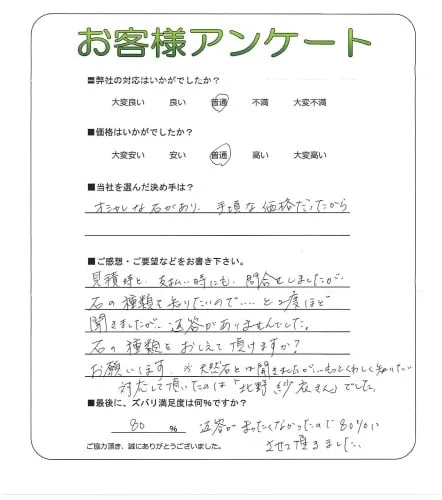 お客様アンケート
■弊社の対応はいかがでしたか?
大変良い 良い 普通 不満 大変不満
■価格はいかがでしたか?
大変安い 安い 普通 高い 大変高い
■当社を選んだ決め手は?
オシャレな石があり、手頃な価格だったから
■ご感想・ご要望などをお書き下さい。
見積時と、支払い時にも、問合せしましたが、
石の種類を知りたいので…と2度ほど
聞きましたが、返答がありませんでした。
石の種類をおしえて頂けますか?
お願いします。※天然石とは聞きましたが…もっとくわしく知りたい
対応して頂いたのは「北野 紗衣さん」でした。
■最後に、ズバリ満足度は何%ですか?
80 % 返答がまったくなかったので80%に
ご協力頂き、誠にありがとうございました。 させて頂きました。